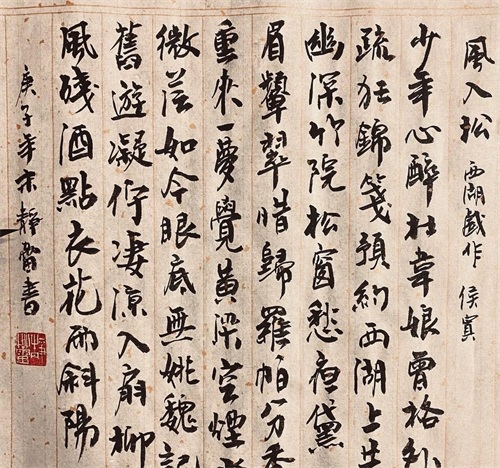 風入松 西湖戲作 侯寘
少年心醉杜韋娘曾格外
疏狂錦箋預約西湖上共
幽深竹院松窗愁夜黛
眉顰翠惜歸羅帕分香
重來一夢覺黃粱空煙
微茫如今眼底無姚魏記
舊遊凝佇淒涼入扇柳
風殘酒點衣花雨斜陽
庚子年 靜 書